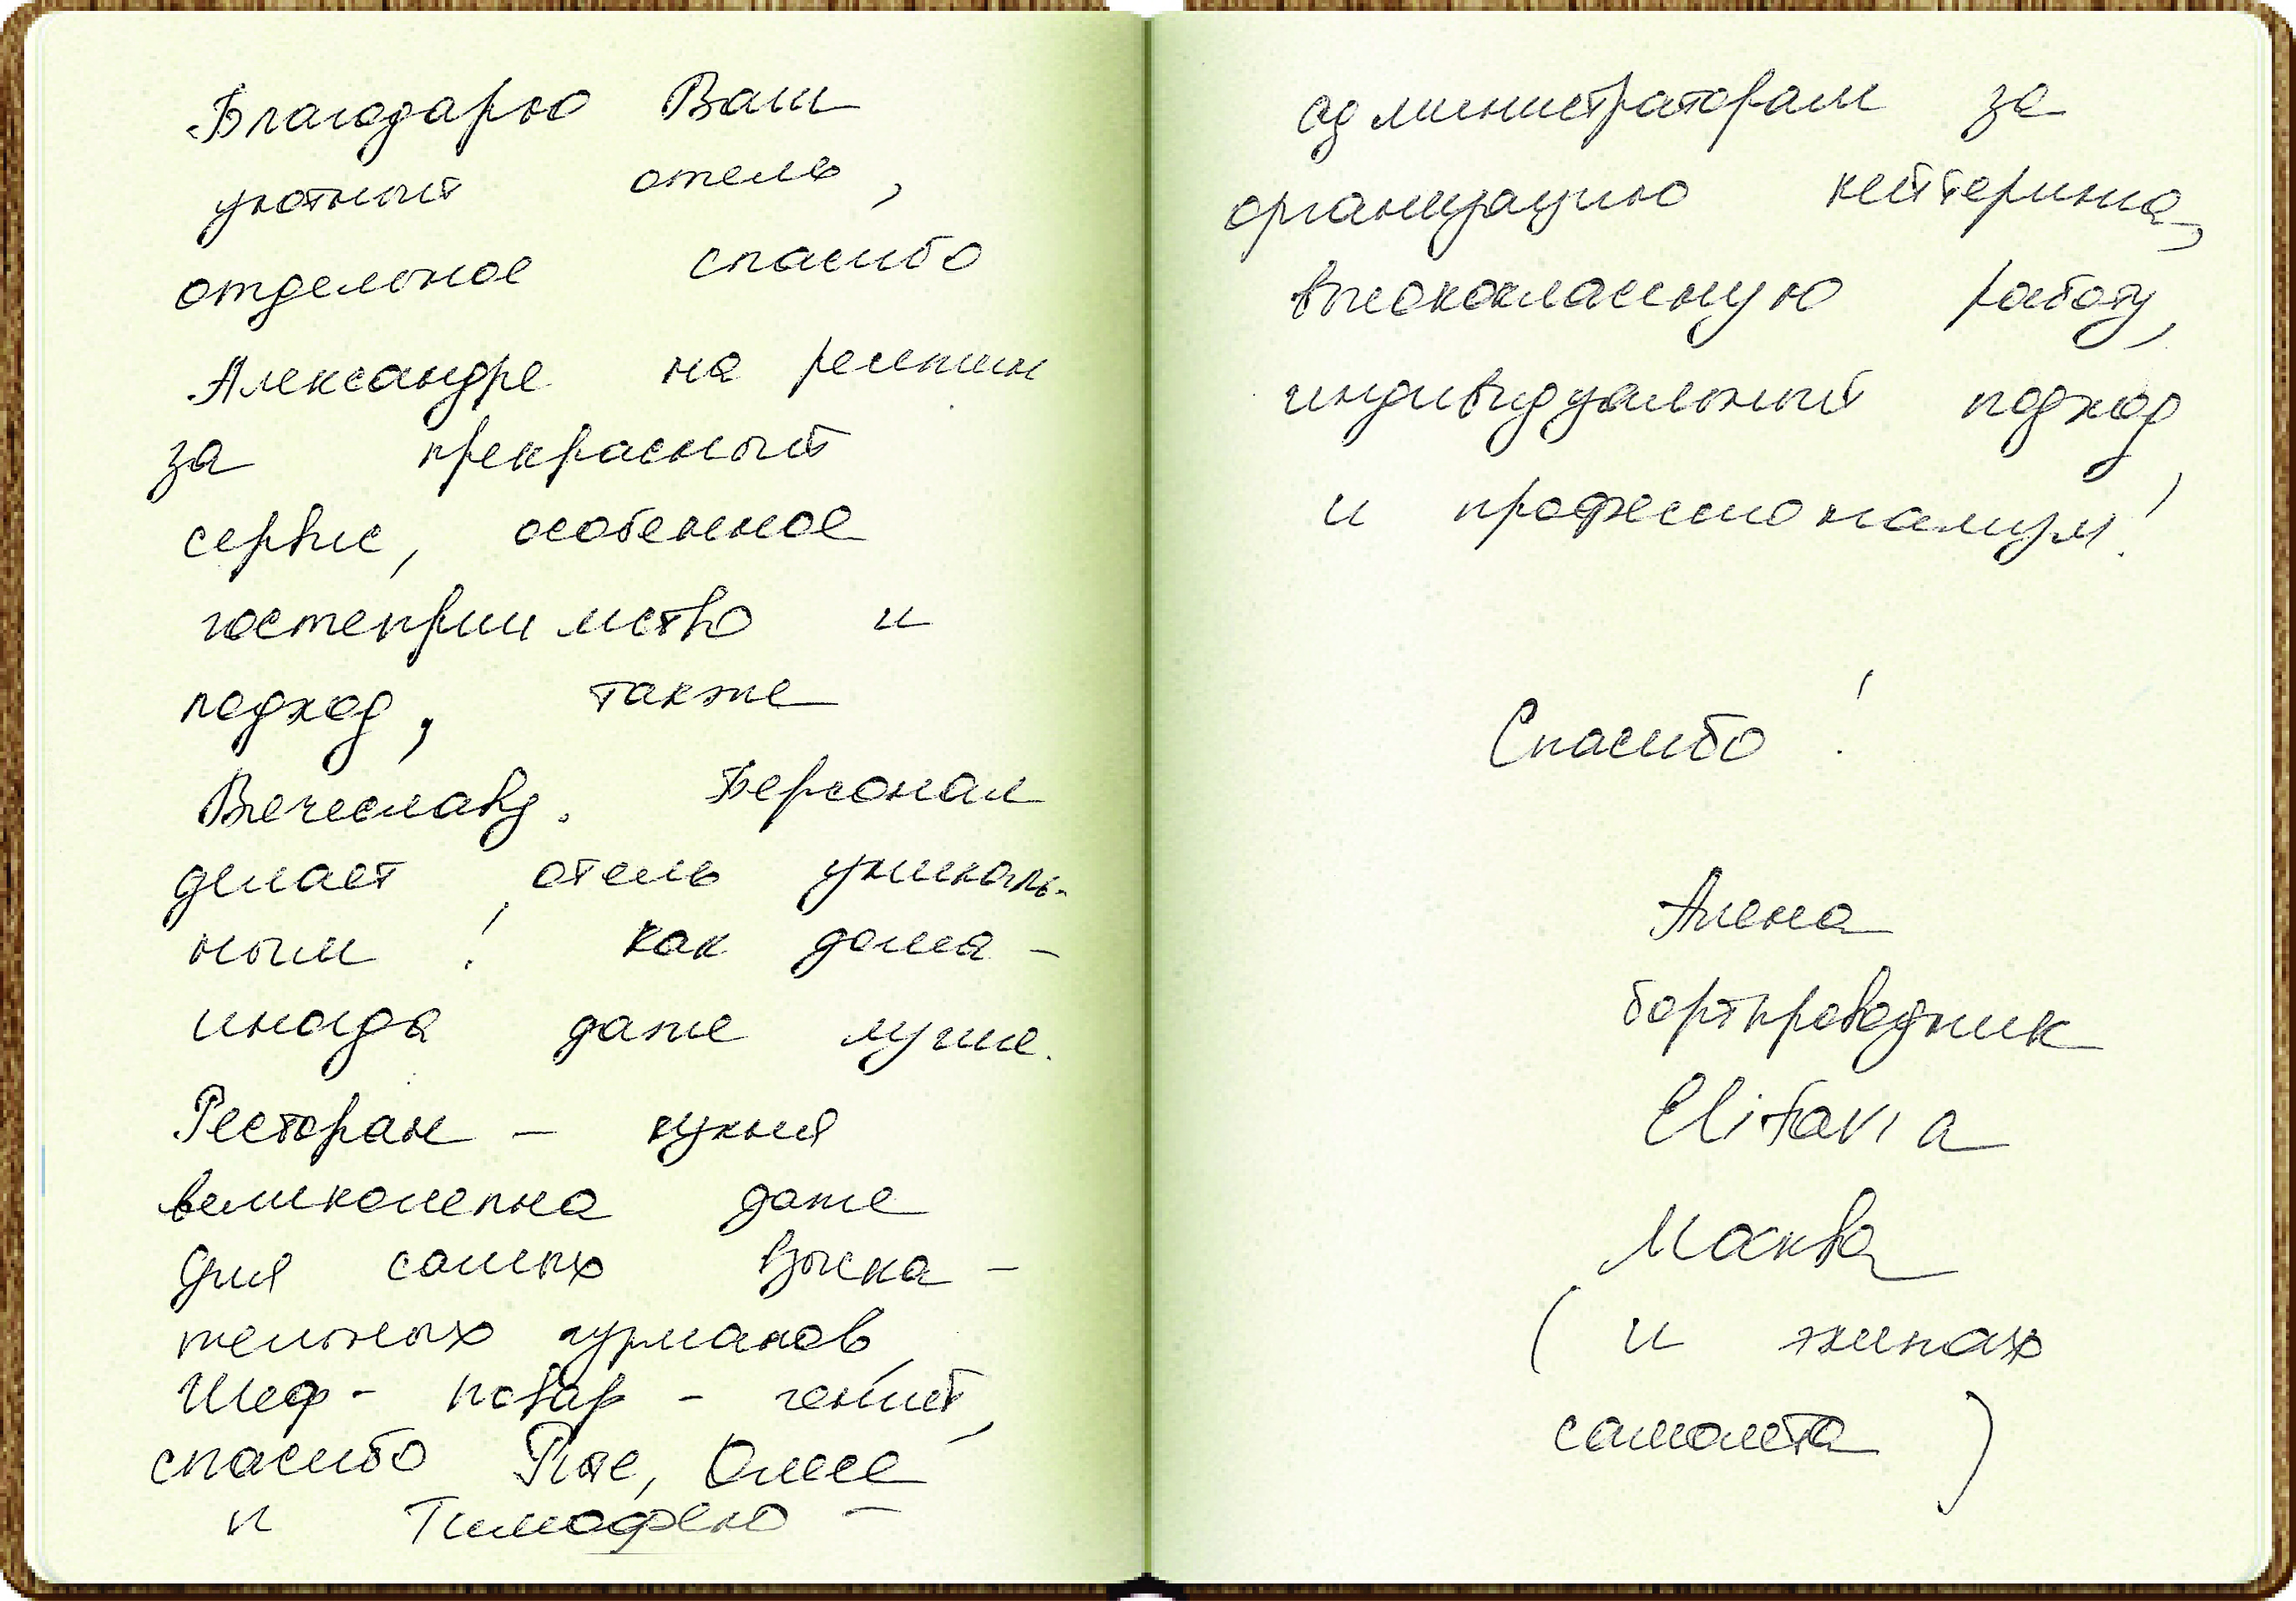 Благодарю Ваш
уютный отель,
отдельное спасибо
Александре на ресепшн
за прекрасный
сервис, особенное
гостеприимство и
подход, также
Вечеславу. Персонал
делает отель уникаль-
ным! как дома -
иногда даже лучше.
Ресторан - кухня
великолепна даже
для самых взыска-
тельных гурманов,
Шеф- повар - гений,
спасибо Рите, Олесе
и Тимофею -
администраторам за
организацию кейтеринга,
высококлассную работу,
индивидуальный подход
и профессионализм!
Спасибо!
Алена
бортпроводник
Elitavia
Москва
(и экипаж
самолета)